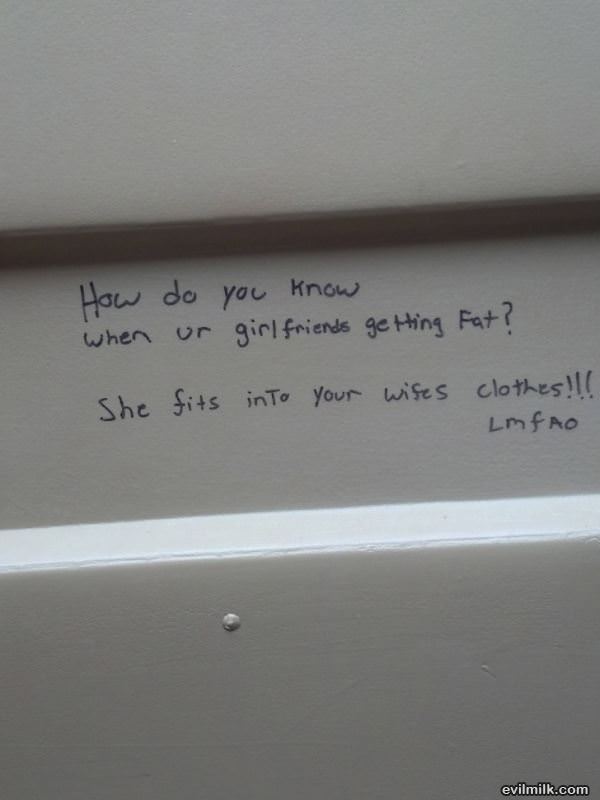 How do you know
when ur girlfriends getting Fat?
She fits inTo your wifes clothes!!!
LmfAO
evilmilk.com